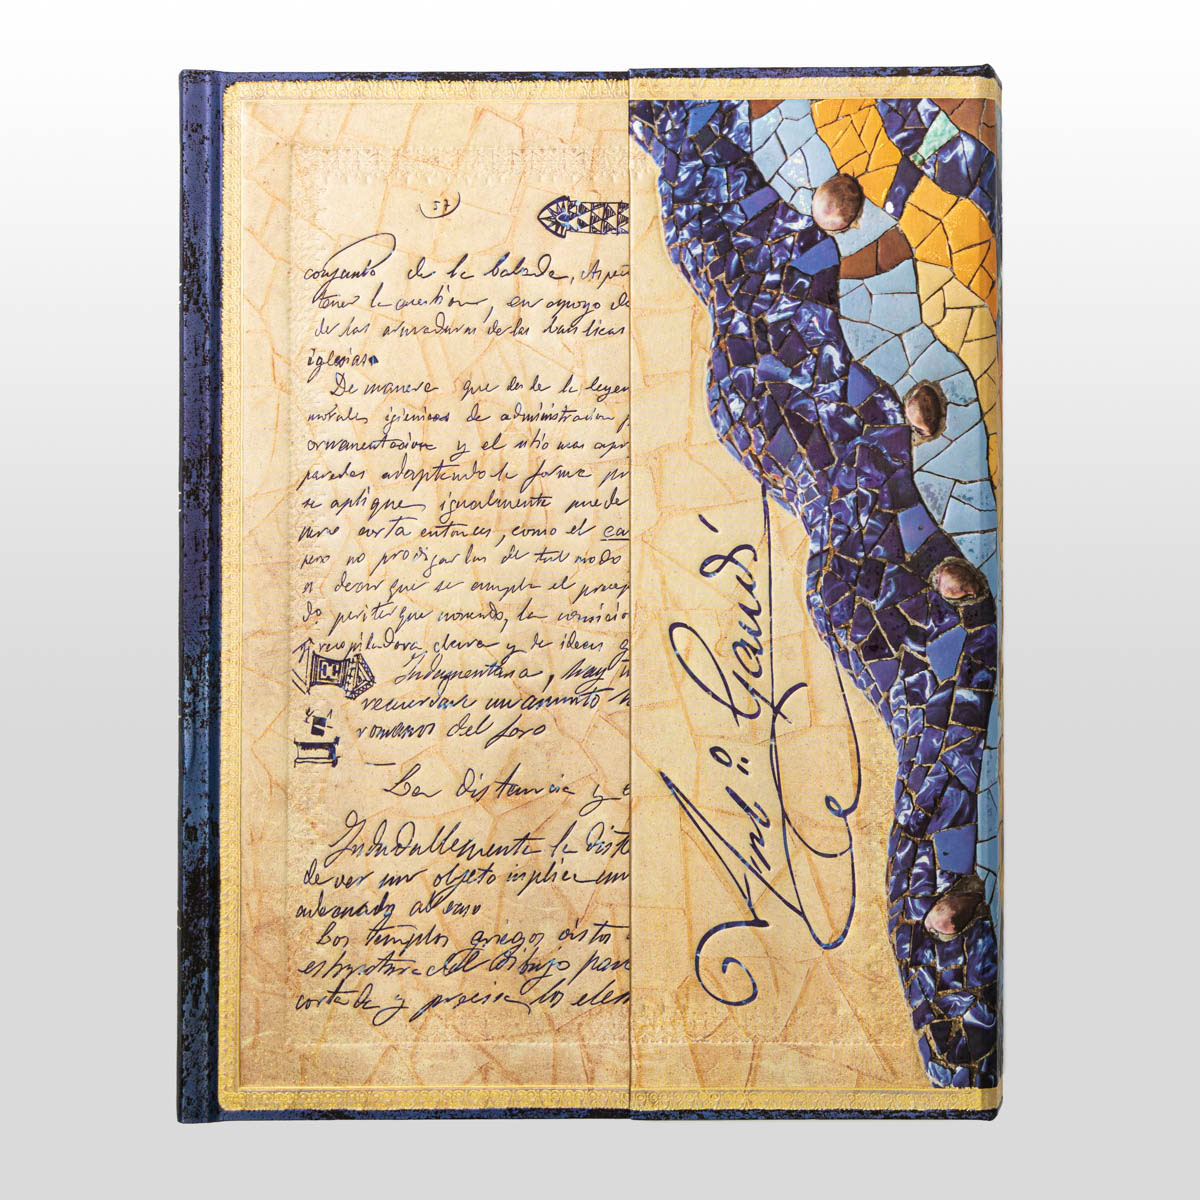 57
conjunto de la balada, A pe
tener la cuestion, en apoyo de
de las armaduras de las basilicas
iglesias
De manera que desde la leyen
morales igienicas de administracion
ornamentacion y el sitio mas apr
paredes adaptando la forma
se aplique igualmente puede
pero corta entonces, como el ca
pero no prodigarlas de tal modo
es decir que se cumpla el precep
do, la concicio
recopiladora clara y de ideas
Indumentaria, hay
recuerdan un asunto
romanos del foro
La distancia y
Indudablemente la dist
de ver un objeto implica un
adecuado al caso
Los templos griegos distos
estructura del dibujo para
cortada y precisa los elem
Ant.º Gaudí